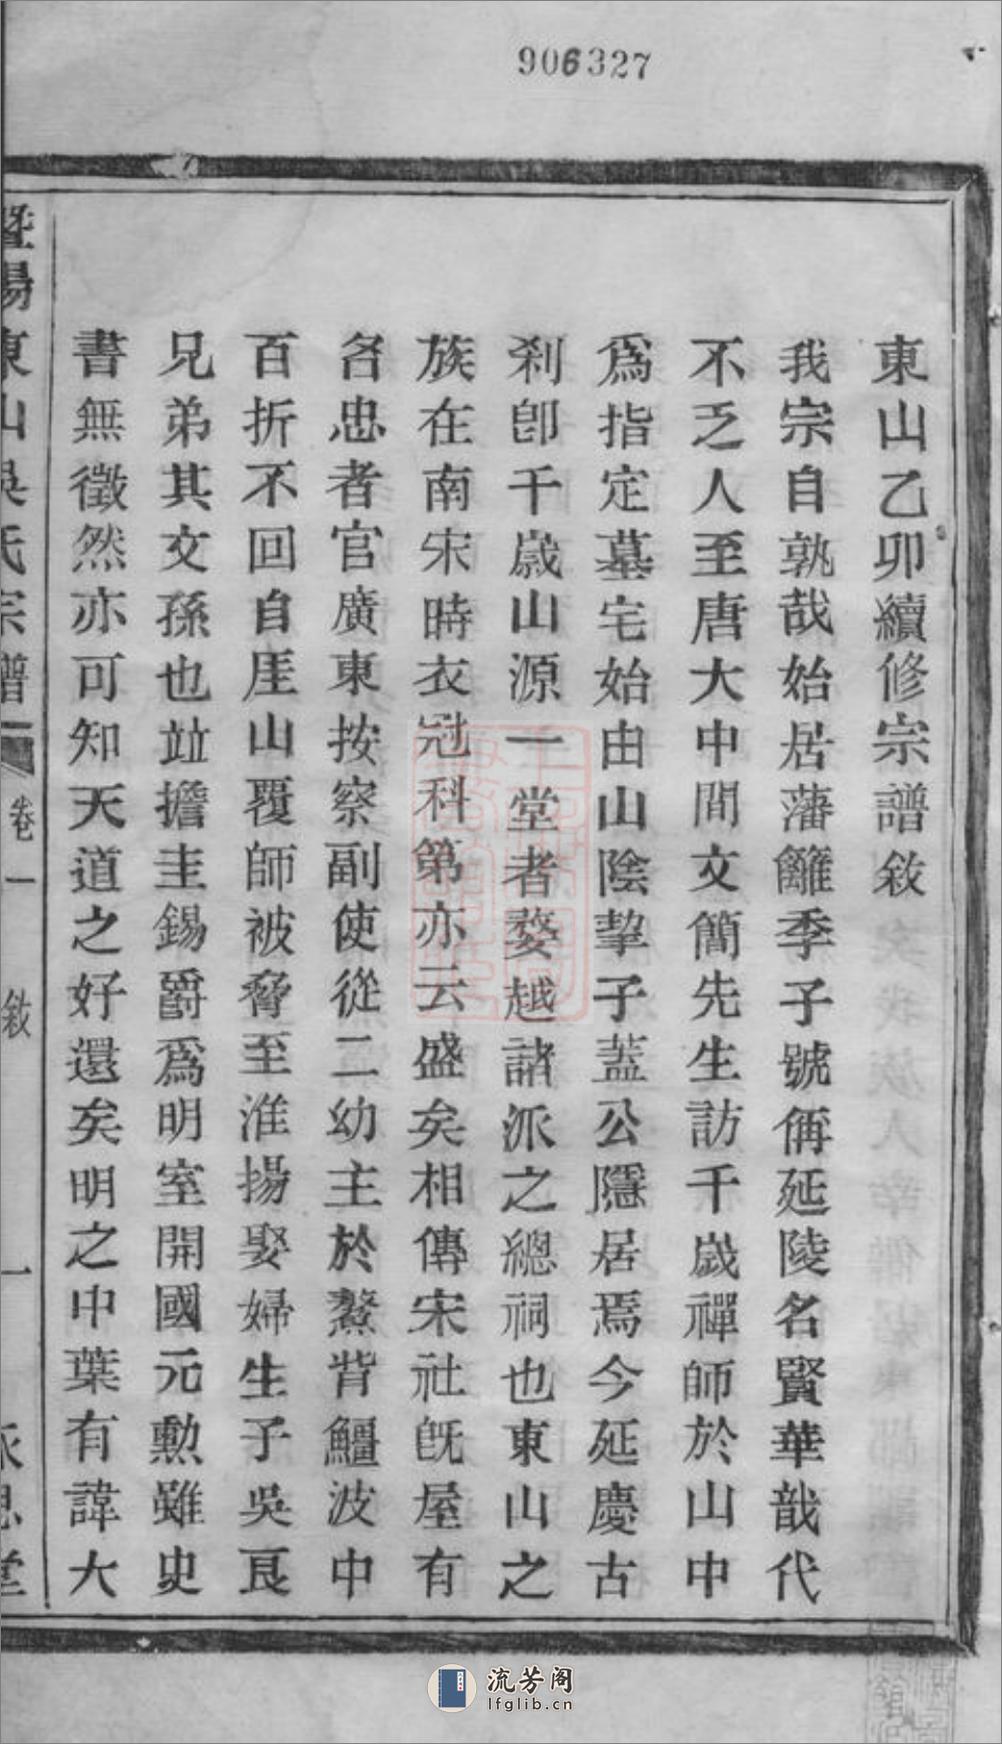 906327
東山乙卯續修宗譜敘
我宗自孰哉始居藩籬季子號稱延陵名賢華戠代
不乏人至唐大中間文簡先生訪千歲禪師於山中
爲指定墓宅始由山陰挈子蓋公隱居焉今延慶古
刹卽千歲山源一堂者婺越諸派之總祠也東山之
族在南宋時衣冠科第亦云盛矣相傳宋社旣屋有
名忠者官廣東按察副使從二幼主於鰲背鱷波中
百折不回自厓山覆師被脅至淮揚娶婦生子吳良
兄弟其文孫也竝擔圭錫爵爲明室開國元勳雖史
書無徵然亦可知天道之好還矣明之中葉有諱大
暨陽東山吳氏宗譜 卷一 敘 一 永思堂
流芳阁
lfglib.cn